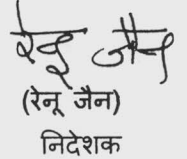 रेनू जैन
(रेनू जैन)
निदेशक